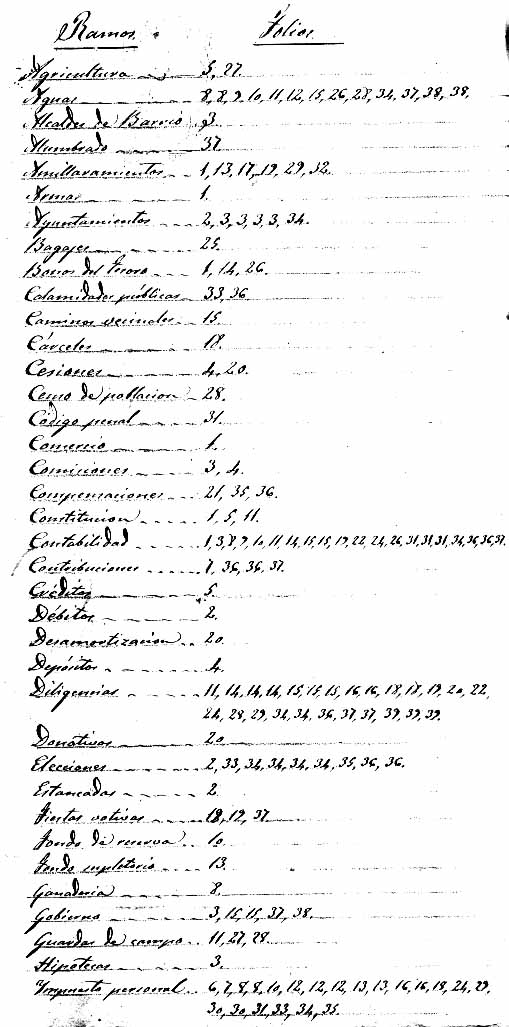 Ramos. Folios.
Agricultura 5, 27.
Aguas 8, 8, 9, 10, 11, 12, 15, 26, 28, 34, 37, 38, 38.
Alcaldes de Barrio 3.
Alumbrado 37.
Amillaramientos 1, 13, 17, 19, 29, 32.
Armas 1.
Ayuntamientos 2, 3, 3, 3, 3, 34.
Bagajes 25.
Bonos del Tesoro 1, 14, 26.
Calamidades públicas 33, 36.
Caminos vecinales 15.
Cárceles 18.
Cesiones 4, 20.
Censo de poblacion 28.
Código penal 31.
Comercio 1.
Comisiones 3, 4.
Compensaciones 21, 35, 36.
Constitucion 1, 5, 11.
Contabilidad 1, 3, 8, 9, 10, 11, 14, 15, 15, 19, 22, 24, 26, 31, 31, 31, 34, 36, 36, 37.
Contribuciones 7, 36, 36, 37.
Créditos 5.
Débitos 2.
Desamortizacion 20.
Depósitos 4.
Diligencias 11, 14, 14, 14, 15, 15, 15, 16, 16, 18, 18, 19, 20, 22,
24, 28, 29, 34, 34, 36, 37, 37, 39, 39, 39.
Donativos 20.
Elecciones 2, 33, 34, 34, 34, 34, 35, 36, 36.
Estancadas 2.
Fiestas votivas 18, 19, 37.
Fondo de reserva 10.
Fondo supletorio 13.
Ganaderia 8.
Gobierno 3, 15, 15, 37, 38.
Guardas de campo 11, 27, 28.
Hipotecas 3.
Impuesto personal 6, 7, 8, 8, 10, 12, 12, 12, 13, 13, 16, 16, 18, 24, 29,
30, 30, 31, 33, 34, 35.